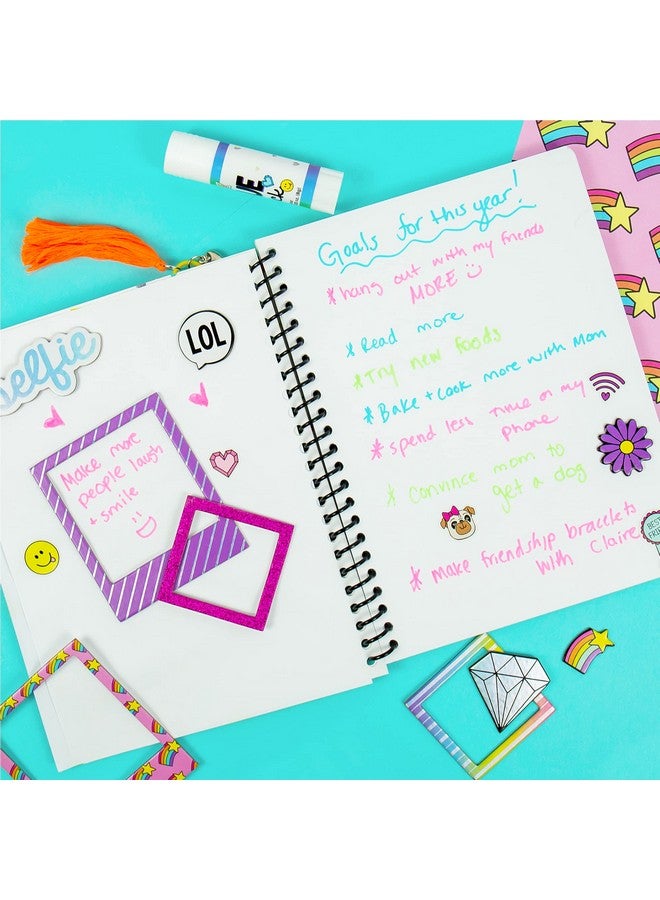 selfie
LOL
Make more
people laugh
+ smile
Goals for this year!
*hang out with my friends
MORE
* Read more
*Try new foods
* Bake + cook more with Mom
* spend less time on my
phone
* Convince mom to
get a dog
* make friendship bracelets
with Claire
BEST